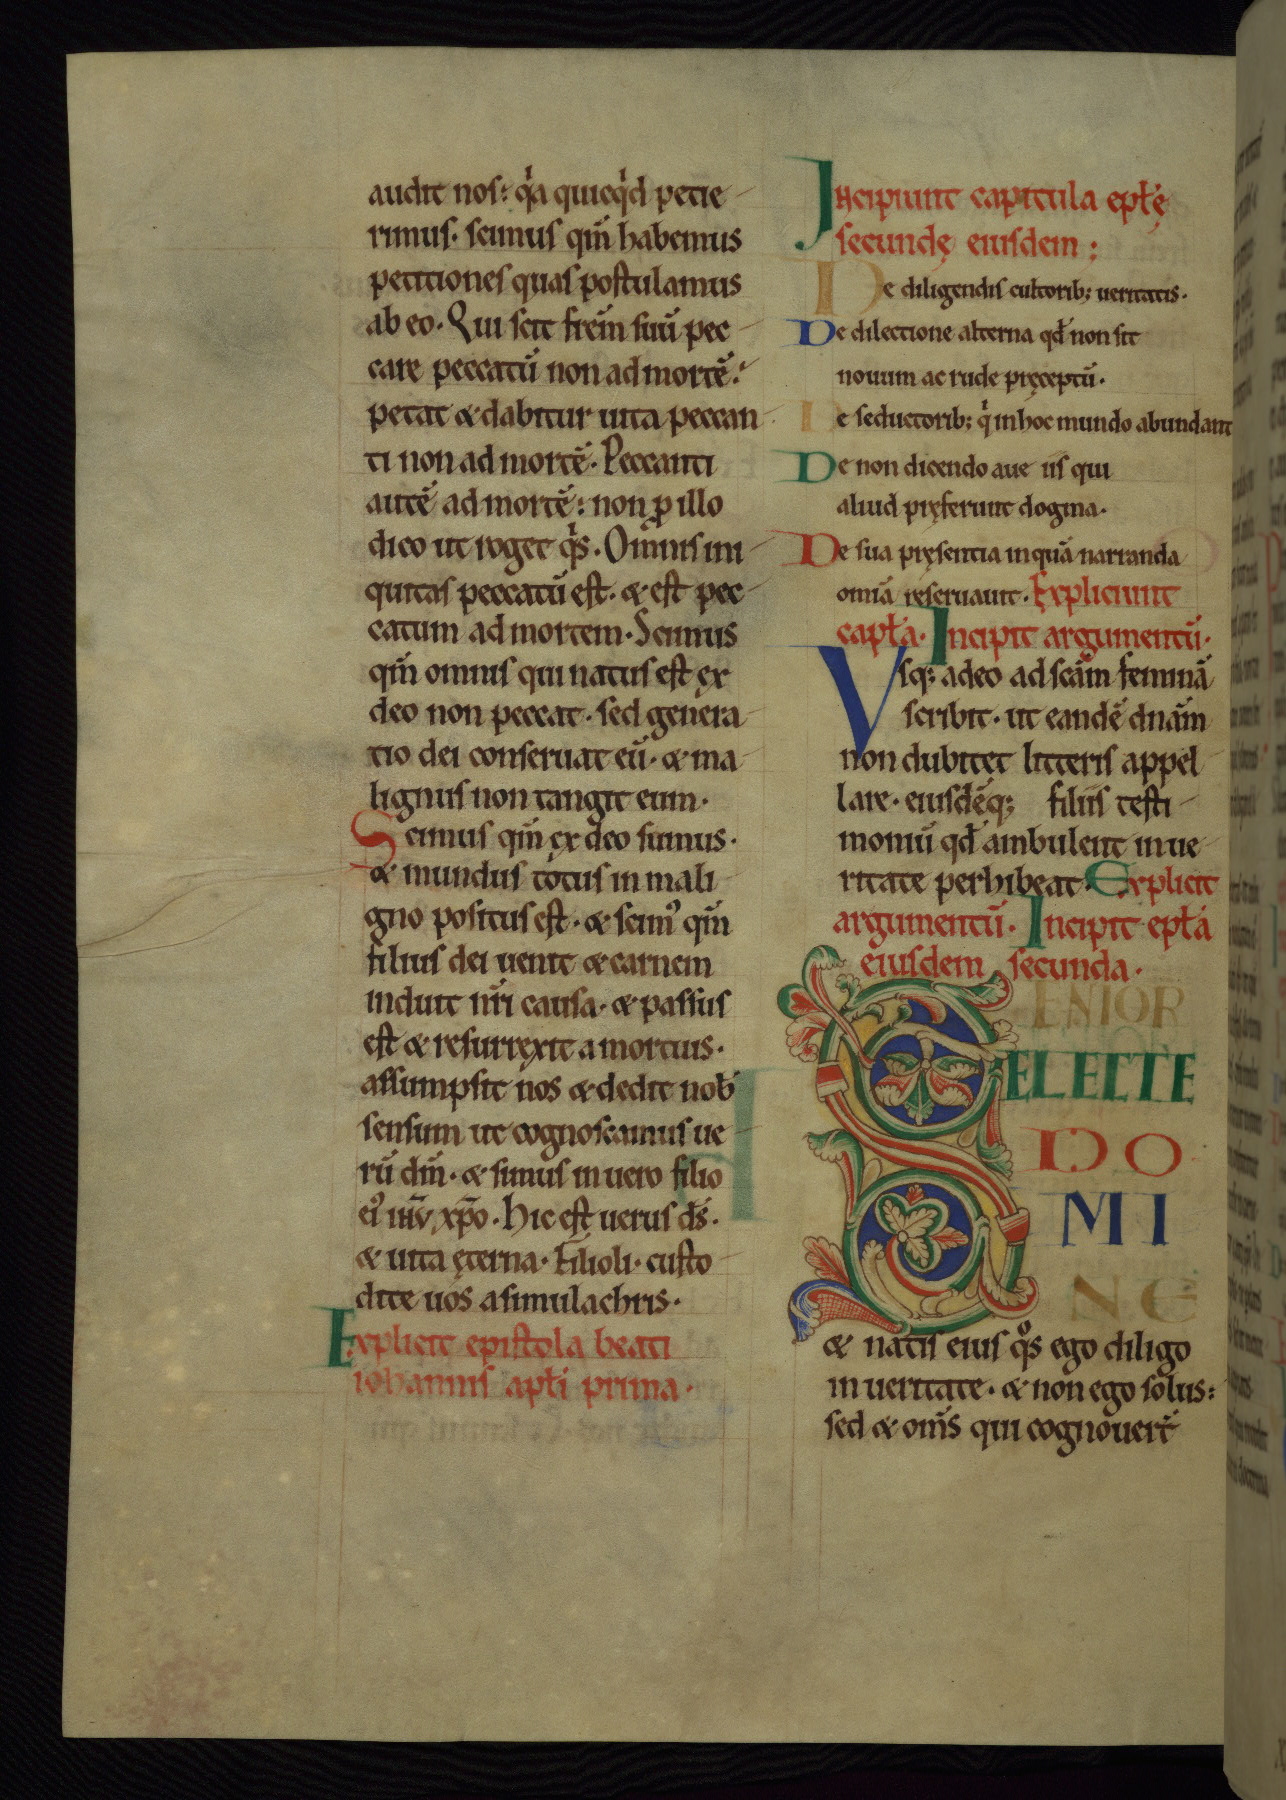 audit nos: q'a quicq'd petie
rimus. scimus qm̄ habemus
petitiones quas postulamus
ab eo. Qui scit frēm suū pec
care peccatū non ad mortē:
petat & dabitur uita peccan
ti non ad mortē. Peccanti
autē ad mortē: non ꝓ illo
dico ut roget q's. Omnis ini
quitas peccatū est. & est pec
catum ad mortem. Scimus
qm̄ omnis qui natus est ex
deo non peccat. sed genera
tio dei conseruat eū. & ma
lignus non tangit eum.
Scimus qm̄ ex deo sumus.
& mundus totus in mali
gno positus est. & scim' qm̄
filius dei uenit & carnem
induit nr̄i causa. & passus
est & resurrexit a mortuis.
assumpsit nos & dedit nob
sensum ut cognoscamus ue
rū dm̄. & simus in uero filio
ei' ihv̄ xp̄o. Hic est uerus ds̄.
& uita ęterna. Filioli. custo
dite uos a simulachris.
Explicit epistola beati
iohannis apłi prima.
Incipiunt capitula epłę
secundę eiusdem:
De diligendis cultorib; ueritatis.
De dilectione alterna qđ non sit
nouum ac rude pręceptū.
De seductorib; q' in hoc mundo abundant
De non dicendo aue iis qui
aliud pręferunt dogma.
De sua pręsentia in quā narranda
omīa reseruauit. Expliciunt
capła. Incipit argumentū.
Vsq; adeo ad scām feminā
scribit. ut eandē dnām
non dubitet litteris appel
lare. eiusdēq; filiis testi
moniū qđ ambulent in ue
ritate perhibeat. Explicit
argumentū. Incipit epła
eiusdem secunda.
SENIOR
ELECTE
DO
MI
NE
& natis eius q°s ego diligo
in ueritate. & non ego solus:
sed & om̄s qui cognouer̄t